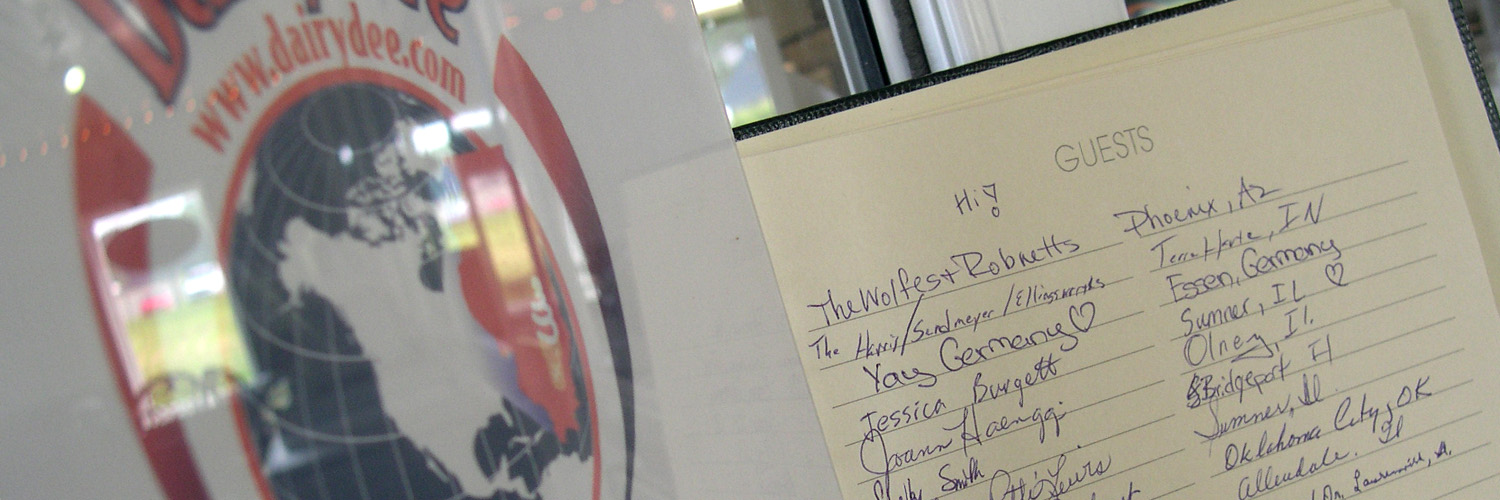 www.dairydee.com
GUESTS
Hi!
The Wolfes + Robnetts Phoenix, Az
The Harris/Sandmeyer/ Terre Haute, IN
Yay Germany♡ Essen, Germany
Jessica Burgett Sumner, IL ♡
Joann Haenggi Olney, Il.
Smith Bridgeport Il
Lewis Sumner, Il
Oklahoma City, OK
Allendale. Il